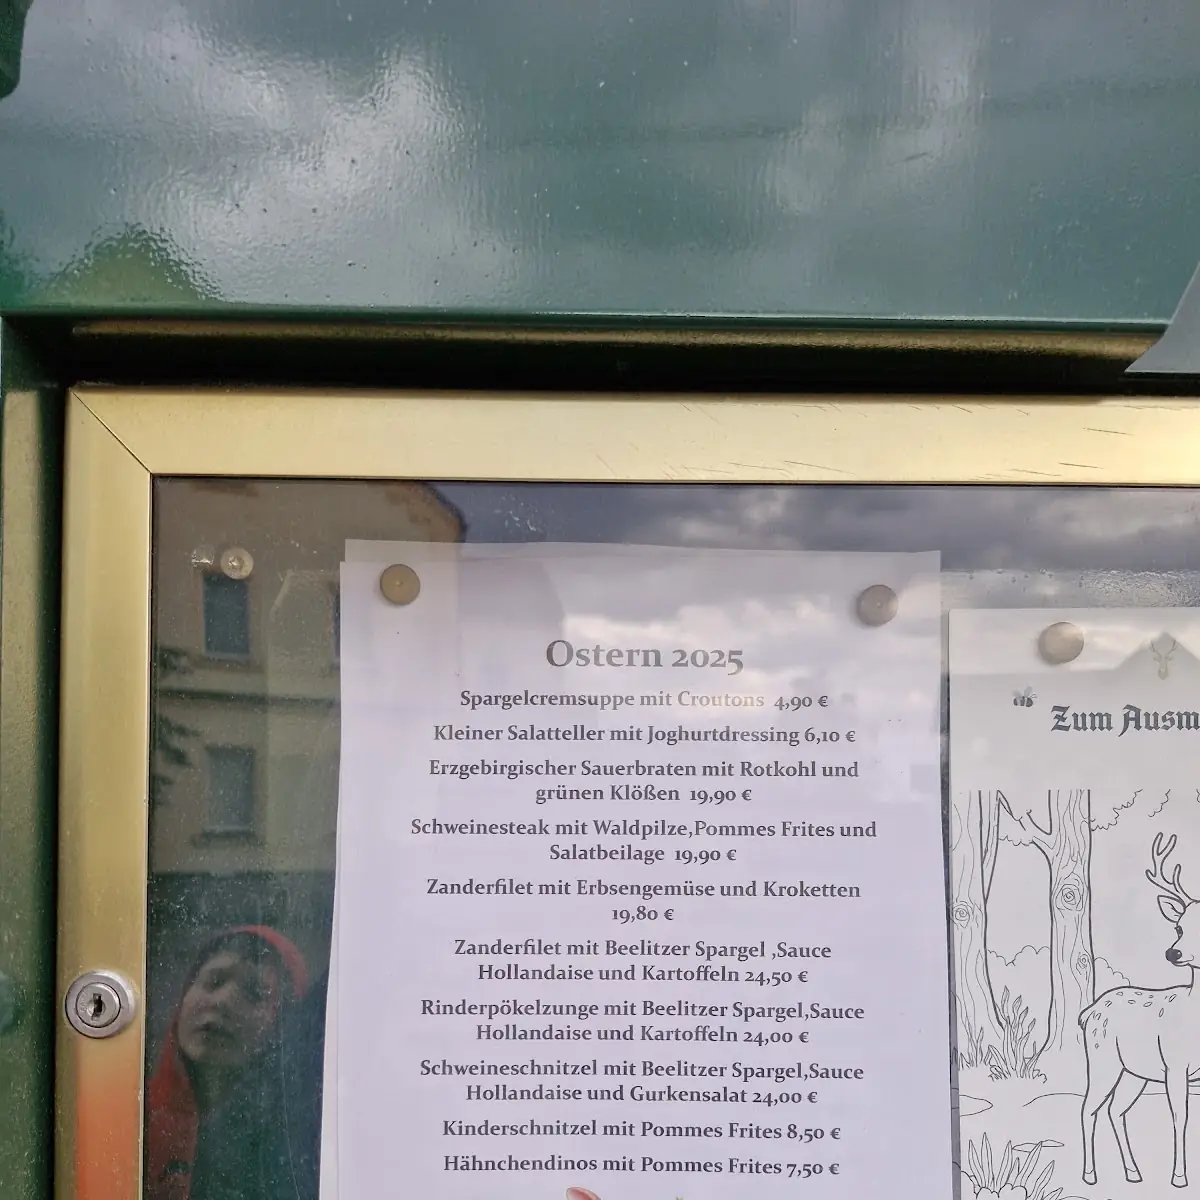 Ostern 2025
Spargelcremsuppe mit Croutons 4,90 €
Kleiner Salatteller mit Joghurtdressing 6,10 €
Erzgebirgischer Sauerbraten mit Rotkohl und
grünen Klößen 19,90 €
Schweinesteak mit Waldpilze,Pommes Frites und
Salatbeilage 19,90 €
Zanderfilet mit Erbsengemüse und Kroketten
19,80 €
Zanderfilet mit Beelitzer Spargel ,Sauce
Hollandaise und Kartoffeln 24,50 €
Rinderpökelzunge mit Beelitzer Spargel,Sauce
Hollandaise und Kartoffeln 24,00 €
Schweineschnitzel mit Beelitzer Spargel,Sauce
Hollandaise und Gurkensalat 24,00 €
Kinderschnitzel mit Pommes Frites 8,50 €
Hähnchendinos mit Pommes Frites 7,50 €
Zum Ausm